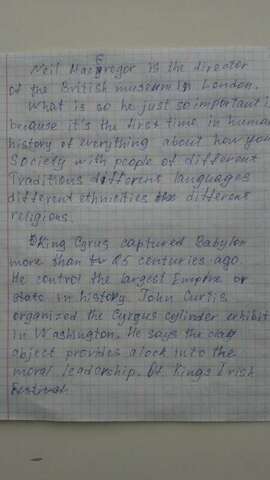 Neil MacGregor is the director
of the British museum in London.
What is so he just so important!
because it's the first time in human
history of everything about how you
Society with people of different
Traditions different languages
different ethnicities different
religions.
King Cyrus captured Babylon
more than 25 centuries ago.
He control the largest Empire or
state in history. John Curtis
organized the Cyrgus cylinder exhibit
in Washington. He says the clay
object provides a look into the
moral leadership. Of Kings Irish